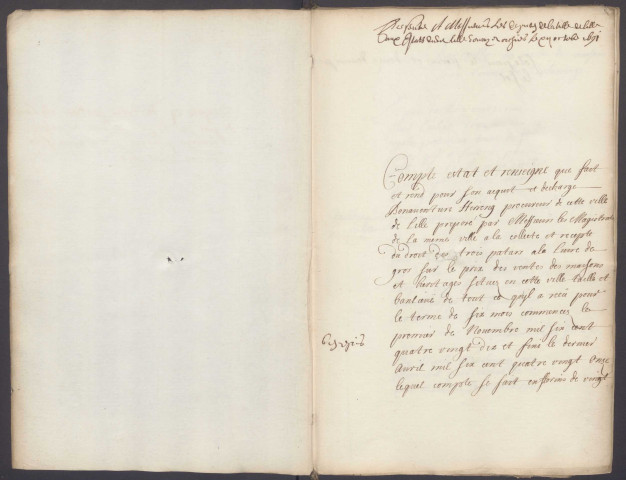 Messieurs Les deputez de la ville de Lille
Compte estat et renseigne que faict
et rend pour son acquit et decharge
Bonaventure Herreng procureur de cette ville
de Lille preposé par Messieurs les Magistrats
de La meme ville a la collecte et recepte
du droit des trois patars a la livre de
gros sur le prix des ventes des maisons
et heritages situez en cette ville taille et
banlieue de tout ce qu'il a receu pour
le terme de six mois commencez le
premier de Novembre mil six cent
quatre vingt dix et finis le dernier
Avril mil six cent quatre vingt onze
lequel compte se fait en florins de vingt